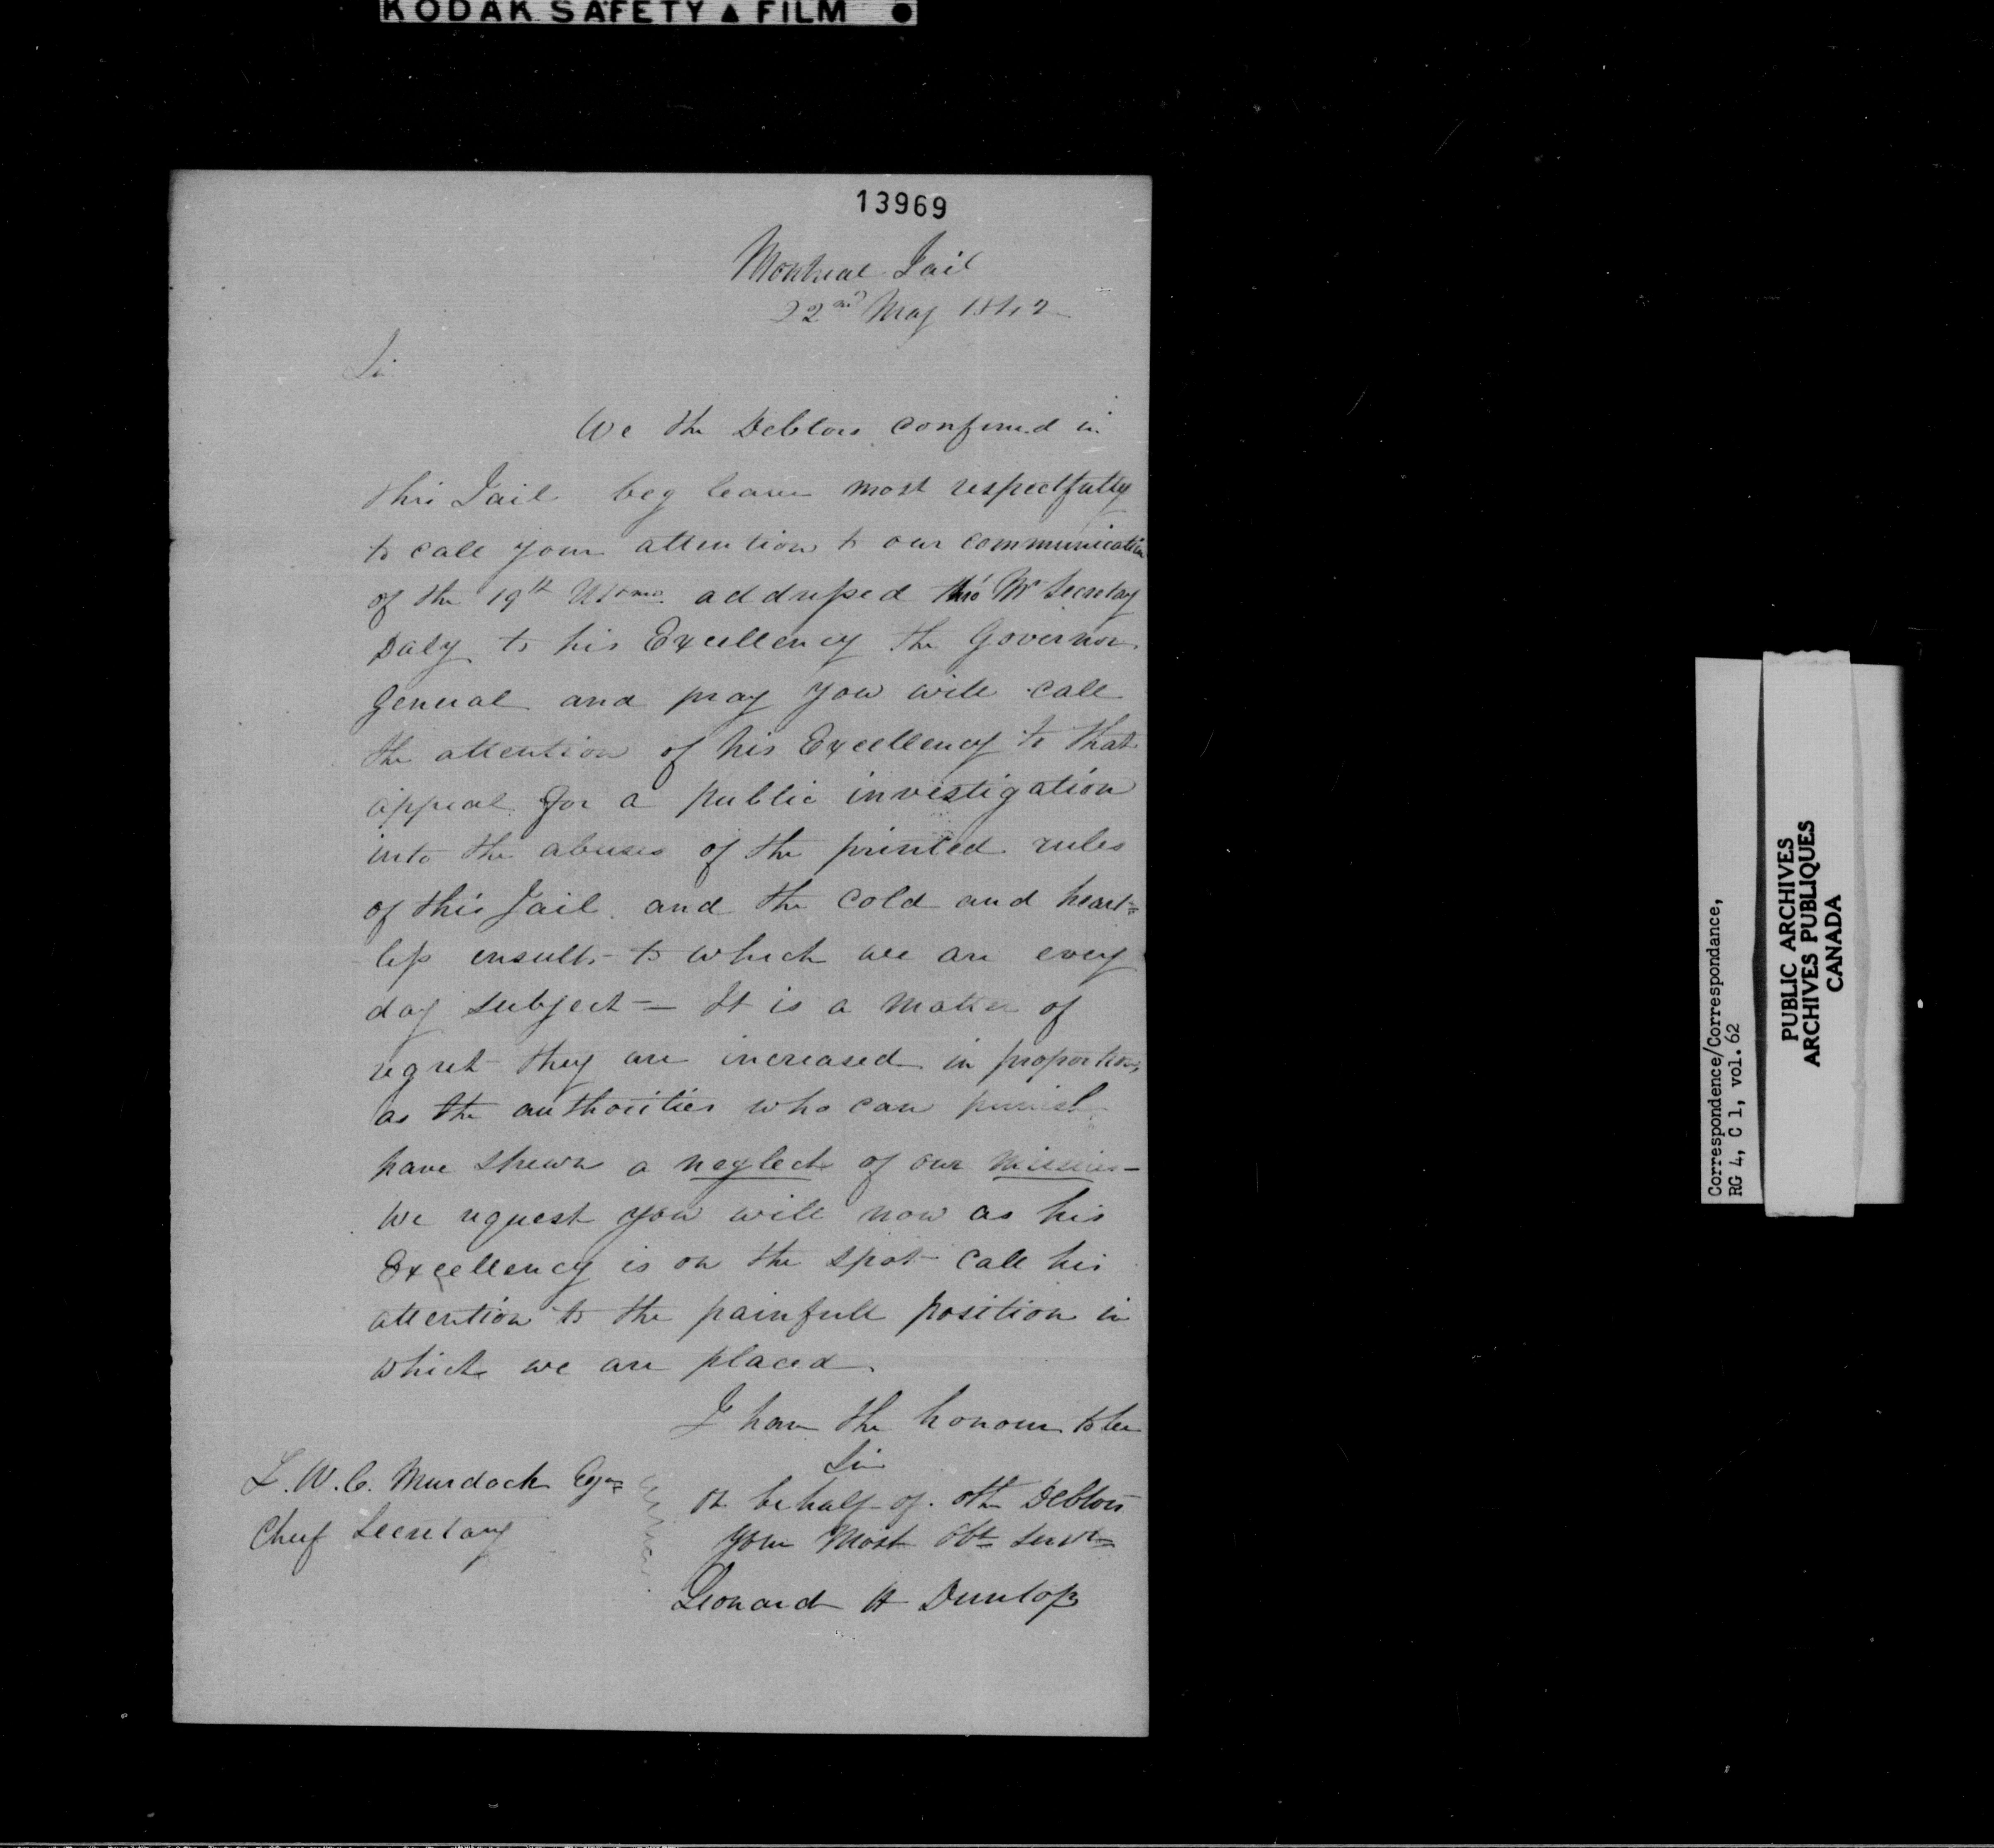 KODAK SAFETY ▲ FILM ●
13969
Montreal Jail
22nd May 1842
Sir
We the Debtors confined in
this Jail beg leave most respectfully
to call your attention to our communication
of the 19th Ultmo addressed thro' Mr Secretary
Daly to his Excellency the Governor
General and pray you will call
the attention of his Excellency to that
appeal for a public investigation
into the abuses of the printed rules
of this Jail and the cold and heart=
less insults to which we are every
day subject = It is a matter of
regret they are increased in proportion
as the authorities who can punish
have shewn a neglect of our miseries -
We request you will now as his
Excellency is on the spot call his
attention to the painfull position in
which we are placed.
I have the honour to be
Sir
on behalf of the Debtors
your most Obt Servt
Leonard H Dunlop
T. W. C. Murdoch Esqr
Chief Secretary
Correspondence/Correspondance,
RG 4, C 1, vol. 62
PUBLIC ARCHIVES
ARCHIVES PUBLIQUES
CANADA